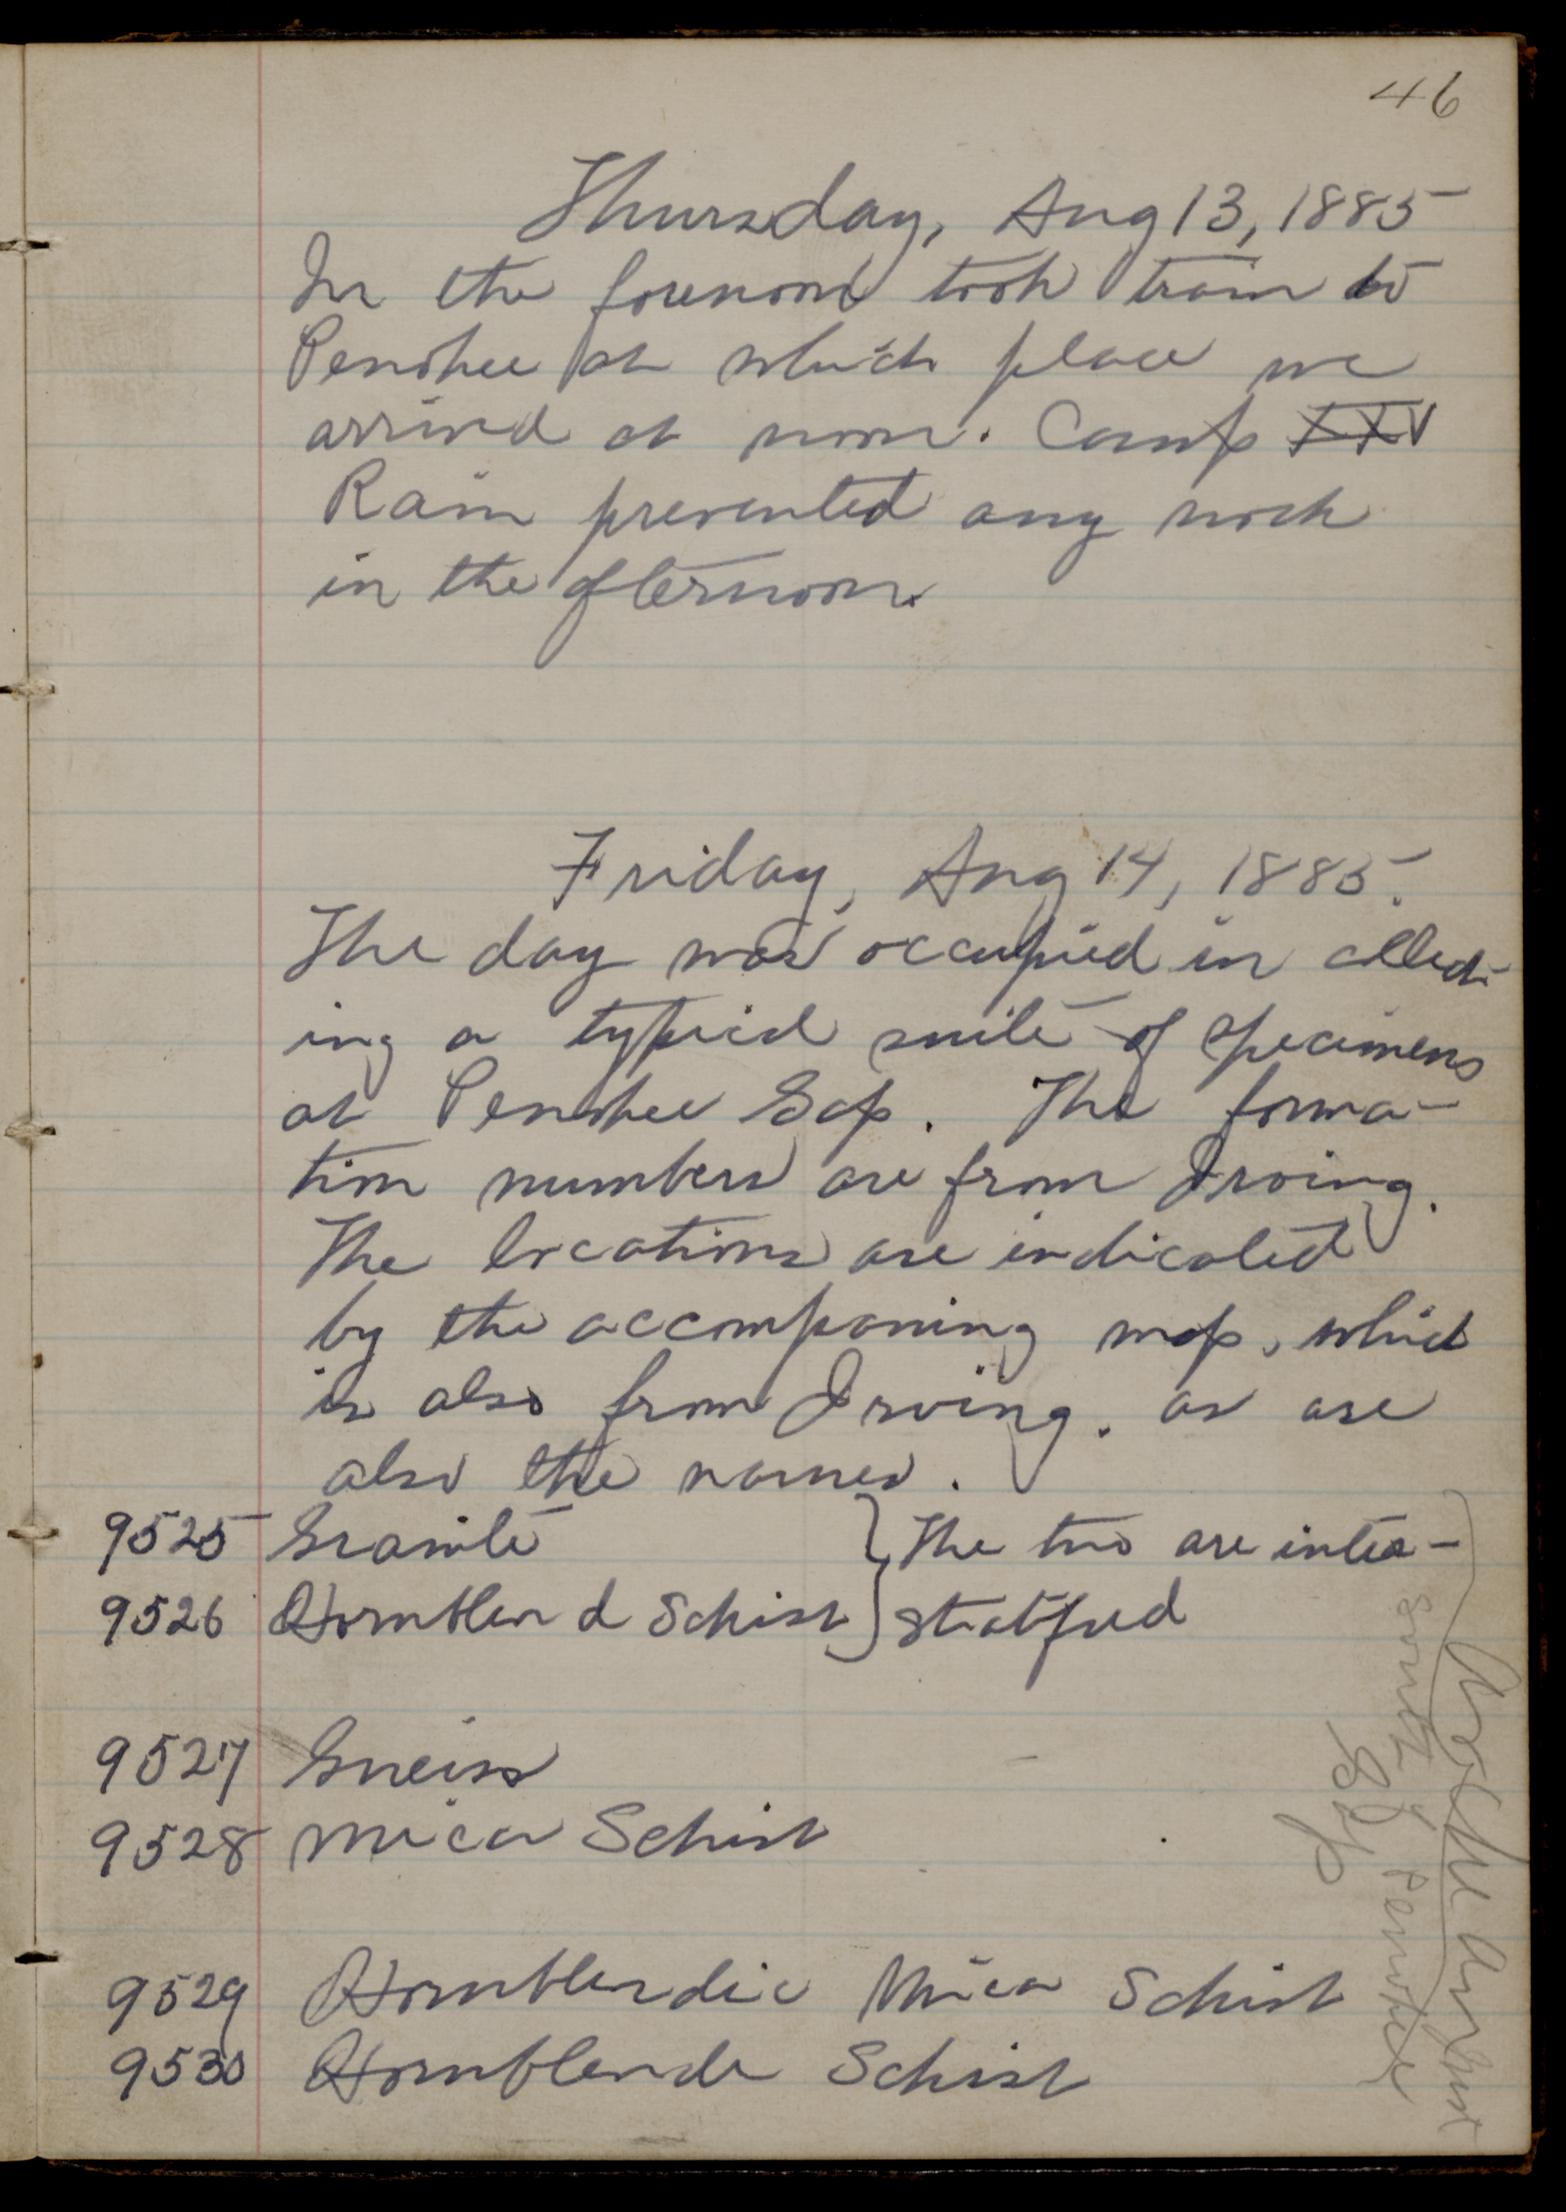 46
Thursday, Aug 13, 1885
In the forenoon took train to
Penokee at which place we
arrived at noon. Camp XXV
Rain prevented any work
in the afternoon.
Friday, Aug 14, 1885.
The day was occupied in collect-
ing a typical suite of specimens
at Penokee Gap. The forma-
tion numbers are from Irving.
The locations are indicated
by the accompaning map, which
is also from Irving. as are
also the names.
9525 Granite } The two are inter-
9526 Hornblend Schist } stratified
9527 Gneiss
9528 Mica Schist
9529 Hornblendic Mica Schist
9530 Hornblende Schist
South of Penokee
Gap